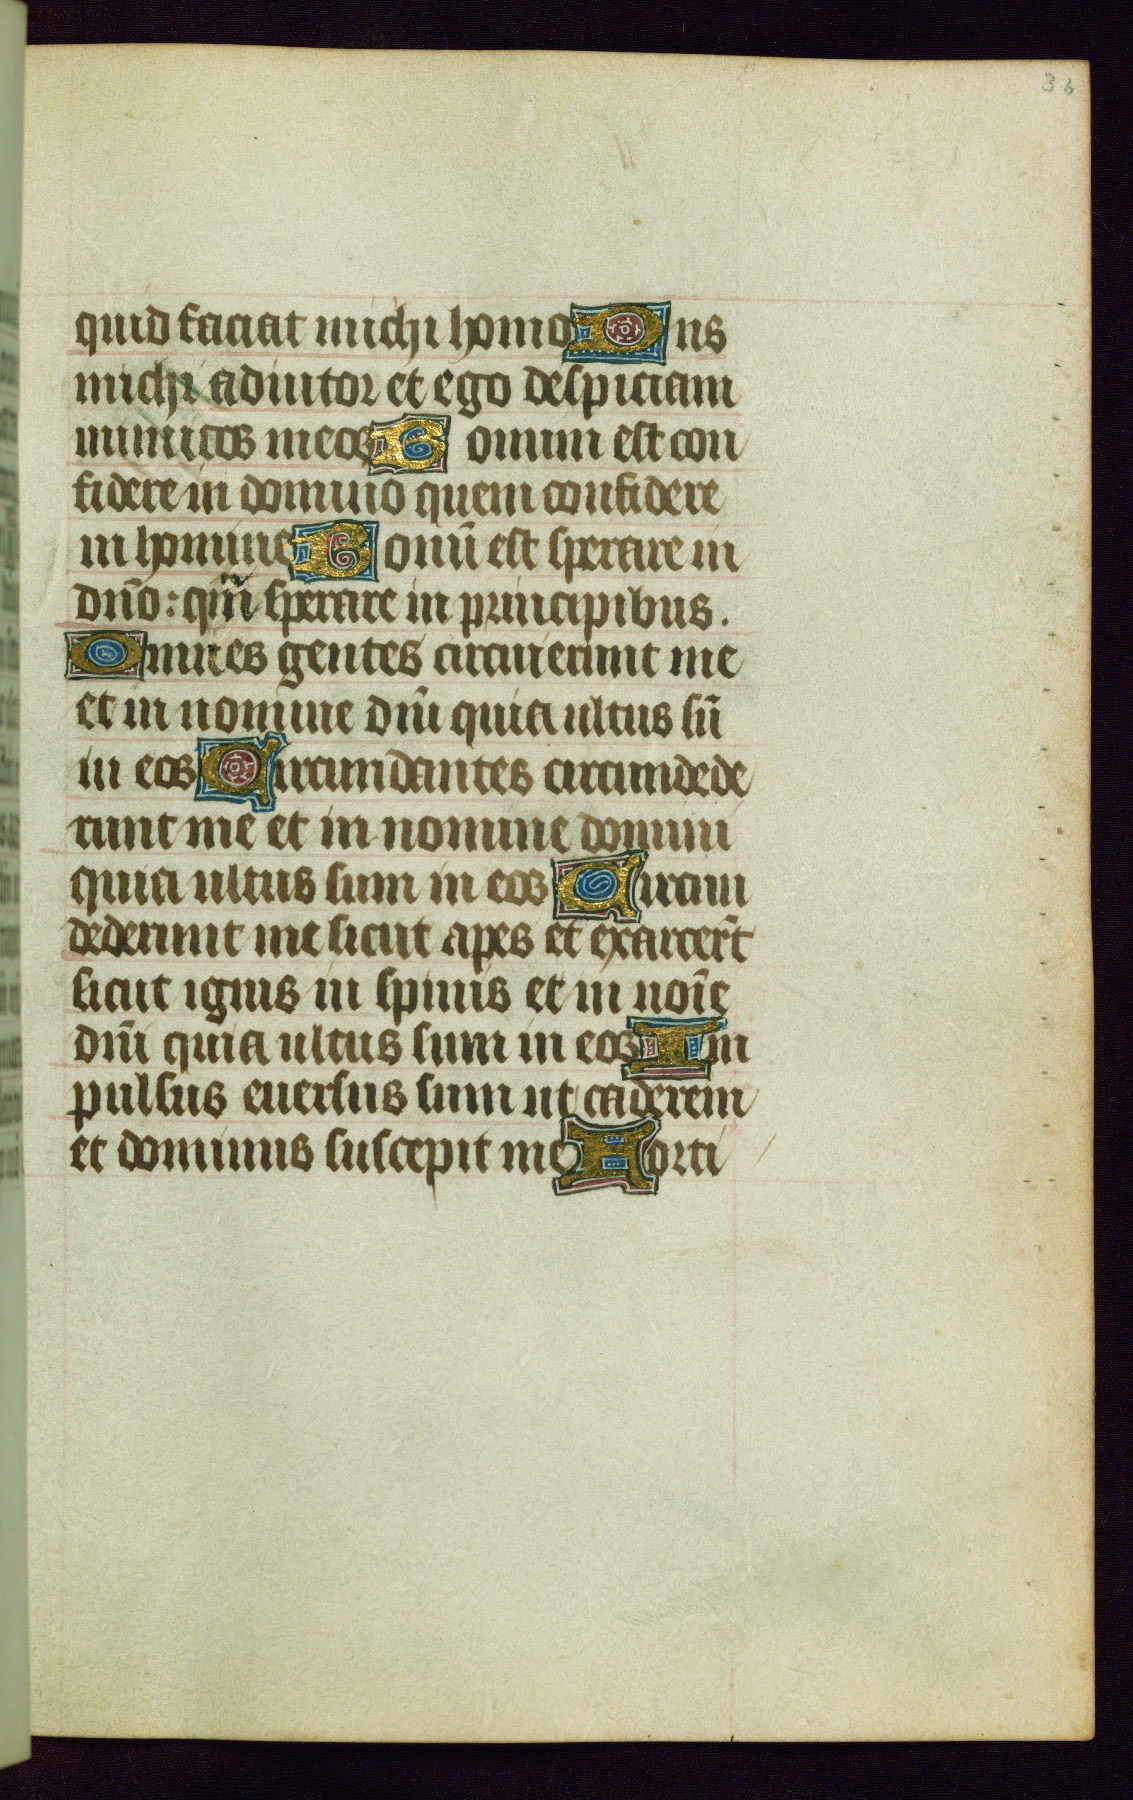 36
quid faciat michi homo Dns
michi adiutor et ego despiciam
inimicos meos Bonum est con
fidere in domino quem confidere
in homine Bonū est sperare in
dño: qm̄ sperare in principibus.
Omnes gentes circuierunt me
et in nomine dñi quia ultus sū
in eos Circumdantes circumdede
runt me et in nomine domini
quia ultus sum in eos Circum
dederunt me sicut apes et exarcer̄t
sicut ignis in spinis et in noīe
dñi quia ultus sum in eos Im
pulsus euersus sum ut caderem
et dominus suscepit me Forti